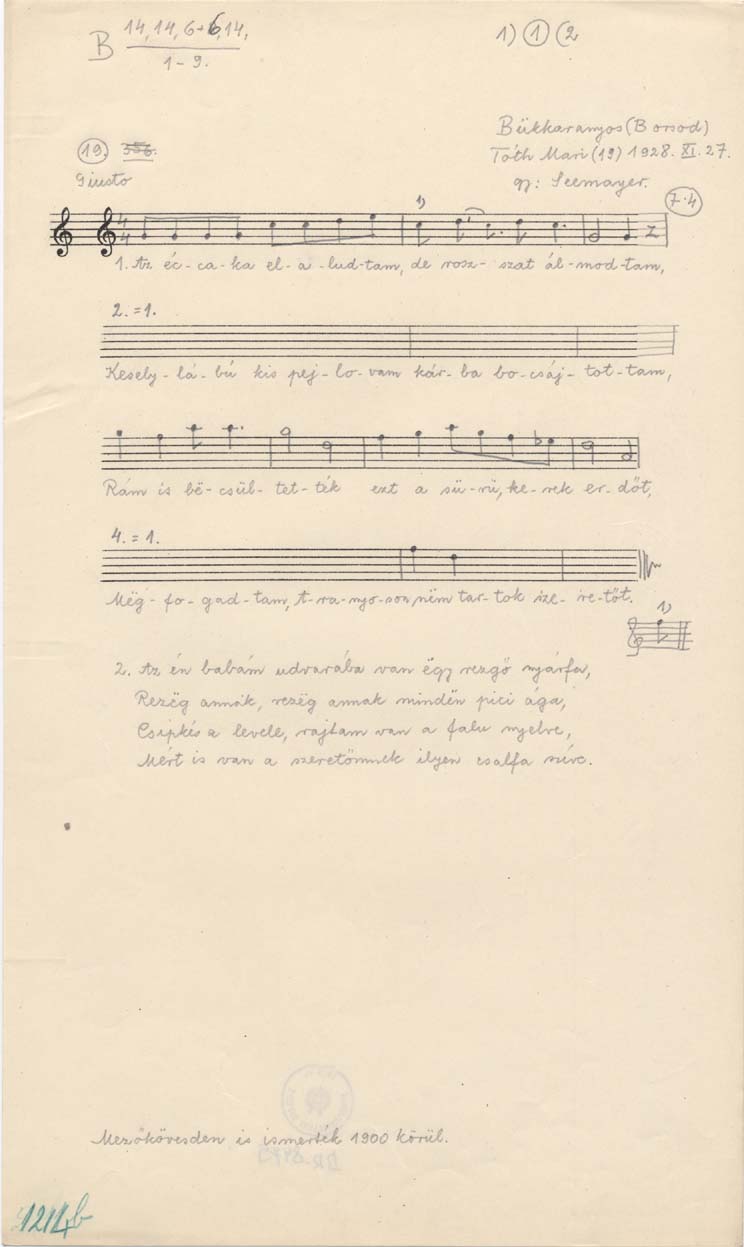 B 14, 14, 6+6, 14,
1 - 9.
1) 1 (2
Bükkaranyos (Borsod)
19. 356.
Tóth Mari (19) 1928. XI. 27.
Giusto
gy: Seemayer.
7·4
1)
4
4
1. Az éc-ca-ka el-a-lud-tam, de rosz-szat ál-mod-tam,
2. = 1.
Kesely-lá-bú kis pej-lo-vam kár-ba bo-csáj-tot-tam,
Rám is bë-csül-tet-ték ezt a sü-rü, ke-rek er-dőt,
4. = 1.
Mëg-fo-gad-tam, t-ra-nyo-son nëm tar-tok sze-re-tőt.
1)
2. Az én babám udvarába van ëgy rezgő nyárfa,
Rezëg annak, rezëg annak mindën pici ága,
Csipkés a levele, rajtam van a falu nyelve,
Mért is van a szeretőmnek ilyen csalfa szíve.
Mezőkövesden is ismerték 1900 körül.
1214b